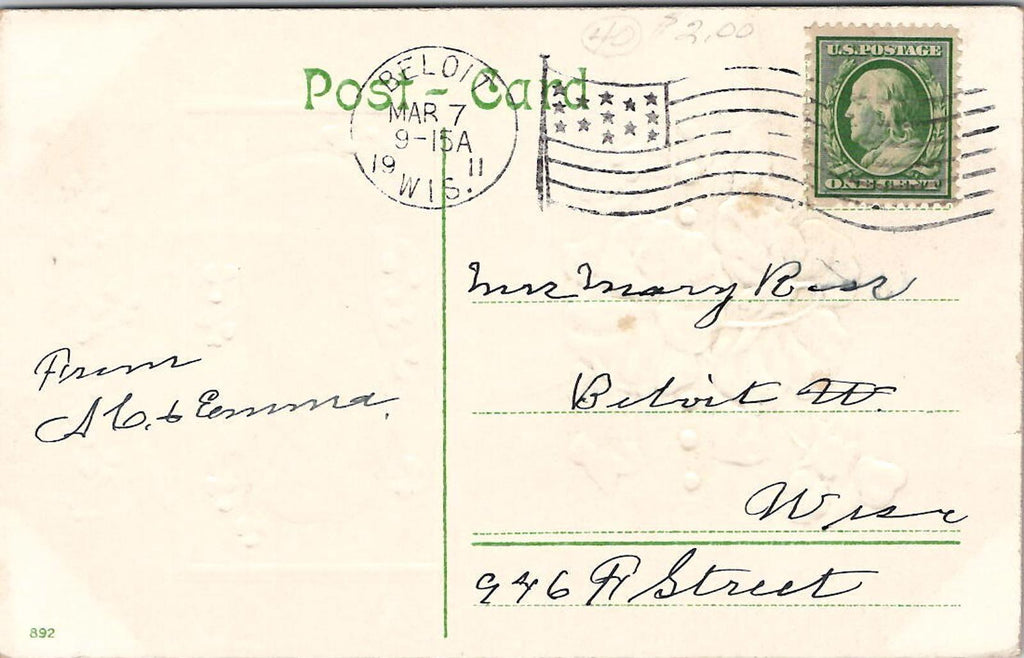 40 $2.00
Post-Card
BELOIT
MAR 7
9-15A
1911
WIS.
U.S. POSTAGE
ONE CENT
Mrs Mary Rose
From
Beloit W.
A C. & Emma.
Wise
946 Street
892